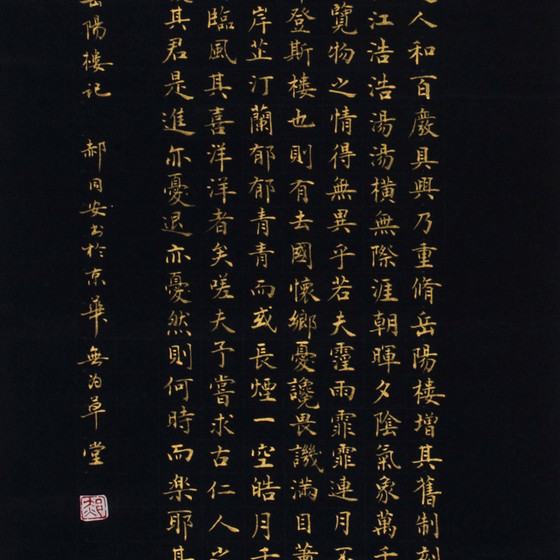 人和百廢具興乃重脩岳陽楼增其舊制刻
江浩浩湯湯橫無際涯朝暉夕陰氣象萬千
覽物之情得無異乎若夫霪雨霏霏連月不
登斯楼也則有去國懷鄉憂讒畏譏滿目蕭
岸芷汀蘭郁郁青青而或長煙一空皓月千
臨風其喜洋洋者矣嗟夫予嘗求古仁人之
其君是進亦憂退亦憂然則何時而楽耶其
岳陽樓記 郝同安书於京華無为草堂
郝